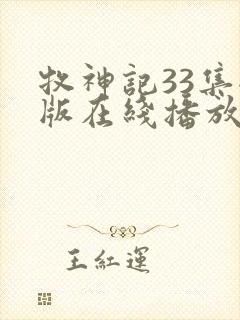 牧神記33集
版在綫播放
王紅運